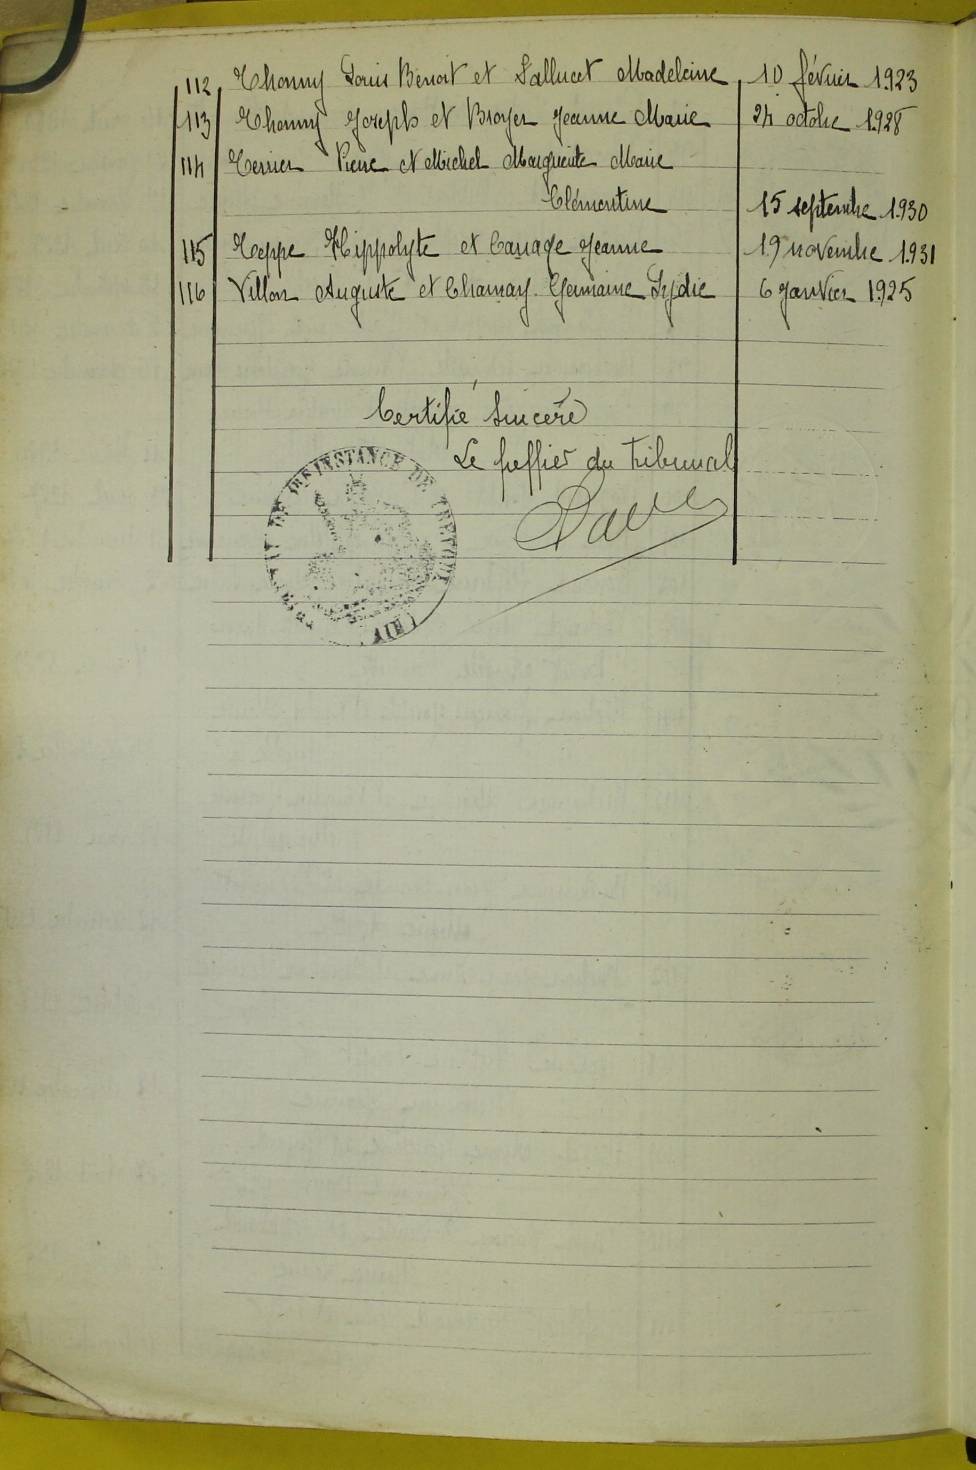 112 Thonny Louis Benoit et Lallucet Madeleine 10 février 1923
113 Thonny Joseph et Broyer Jeanne Marie 24 octobre 1928
114 Terrier Pierre et Michel Marguerite Marie
Clémentine 15 septembre 1930
115 Teppe Hippolyte et Canage Jeanne 19 novembre 1931
116 Villon Auguste et Chanay Germaine Lydie 6 janvier 1925
Certifié Sincère
Le greffier du tribunal
INSTANCE DE TREVOUX
(AIN)